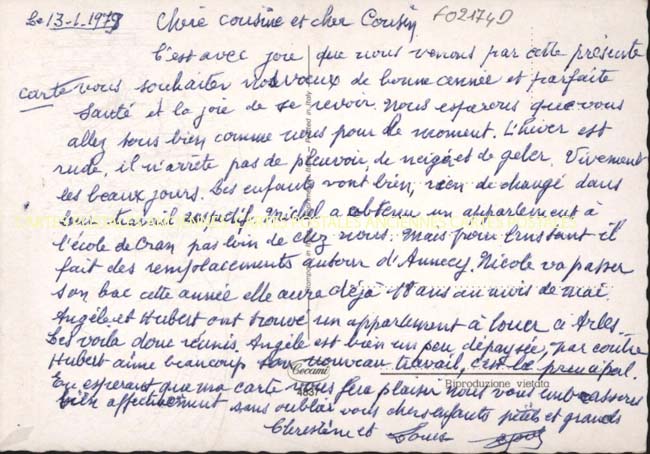 Le 13-1-1979 Chère cousine et cher Cousin F02174D
C'est avec joie que nous venons par cette présente
carte vous souhaiter nos vœux de bonne année et parfaite
santé et la joie de se revoir. Nous espérons que vous
allez tous bien comme nous pour le moment. L'hiver est
rude, il n'arrête pas de pleuvoir de neiger et de geler. Vivement
les beaux jours. Les enfants vont bien, rien de changé dans
leur travail respectif. Michel a obtenu un appartement à
l'école de Cran pas loin de chez nous. Mais pour l'instant il
fait des remplacements autour d'Annecy. Nicole va passer
son bac cette année elle aura déjà 18 ans au mois de mai.
Angèle et Hubert ont trouvé un appartement à louer à Arles.
Les voila donc réunis. Angèle est bien un peu dépaysée, par contre
Hubert aime beaucoup son nouveau travail, c'est le principal.
Cecami
4837
Riproduzione vietata
En espérant que ma carte vous fera plaisir nous vous embrassons
bien affectueusement sans oublier vos chers enfants petits et grands
et Louis